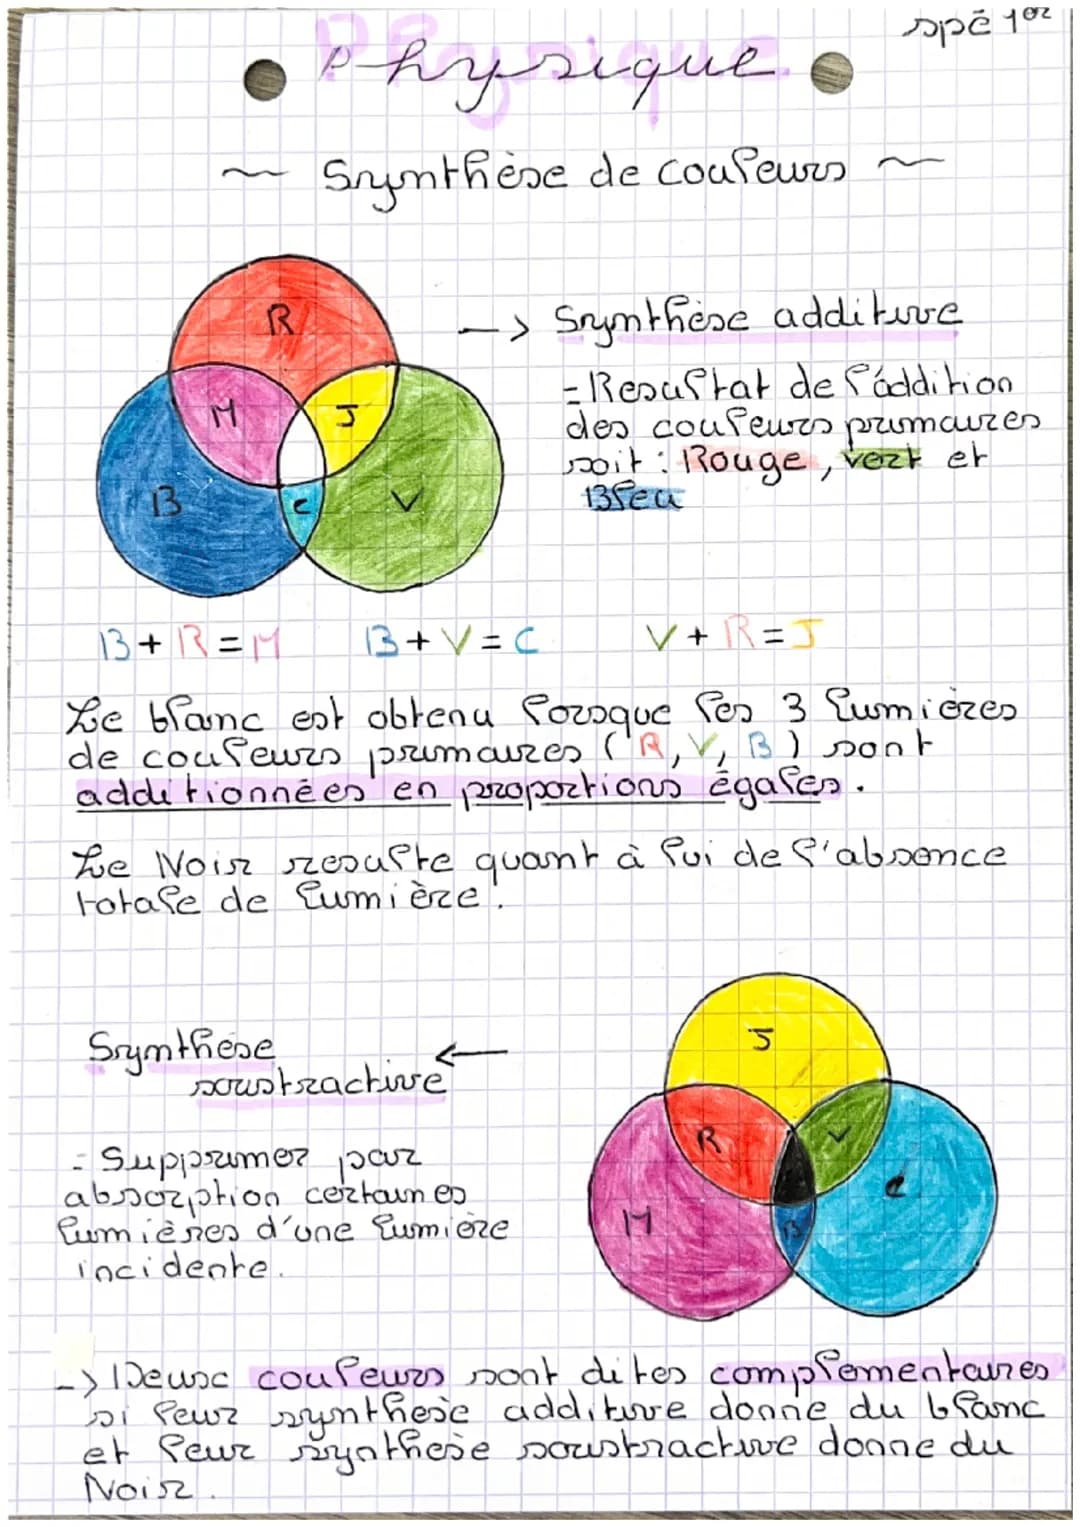 spé 1er
Physique
~ Synthèse de couleurs ~
R
M
J
B
C
V
-> Synthèse additive
= Resultat de l'addition
des couleurs primaires
soit : Rouge, vert et
Bleu
B + R = M B + V = C V + R = J
Le blanc est obtenu lorsque les 3 lumières
de couleurs primaires ( R, V, B ) sont
additionnées en proportions égales.
Le Noir resulte quant à lui de l'absence
totale de lumière.
Synthèse
soustractive
<-
= Supprimer par
absorption certaines
lumières d'une lumière
incidente.
J
R
V
M
C
B
-> Deux couleurs sont dites complementaires
si leur synthese additive donne du blanc
et leur synthese soustractive donne du
Noir.